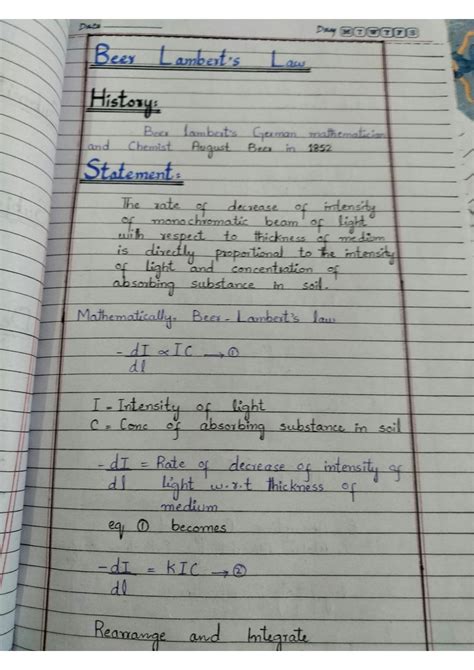 Date
Day M T W T F S
Beer Lambert's Law
History:
Beer lambert's German mathematician
and Chemist August Beer in 1852
Statement:
The rate of decrease of intensity
of monochromatic beam of light
with respect to thickness of medium
is directly proportional to the intensity
of light and concentration of
absorbing substance in soil.
Mathematically, Beer-Lambert's law
-dI/dl ∝ IC → ①
I = Intensity of light
C = Conc of absorbing substance in soil
-dI/dl = Rate of decrease of intensity of
light w.r.t thickness of
medium
eq ① becomes
-dI/dl = KIC → ②
Rearrange and Integrate